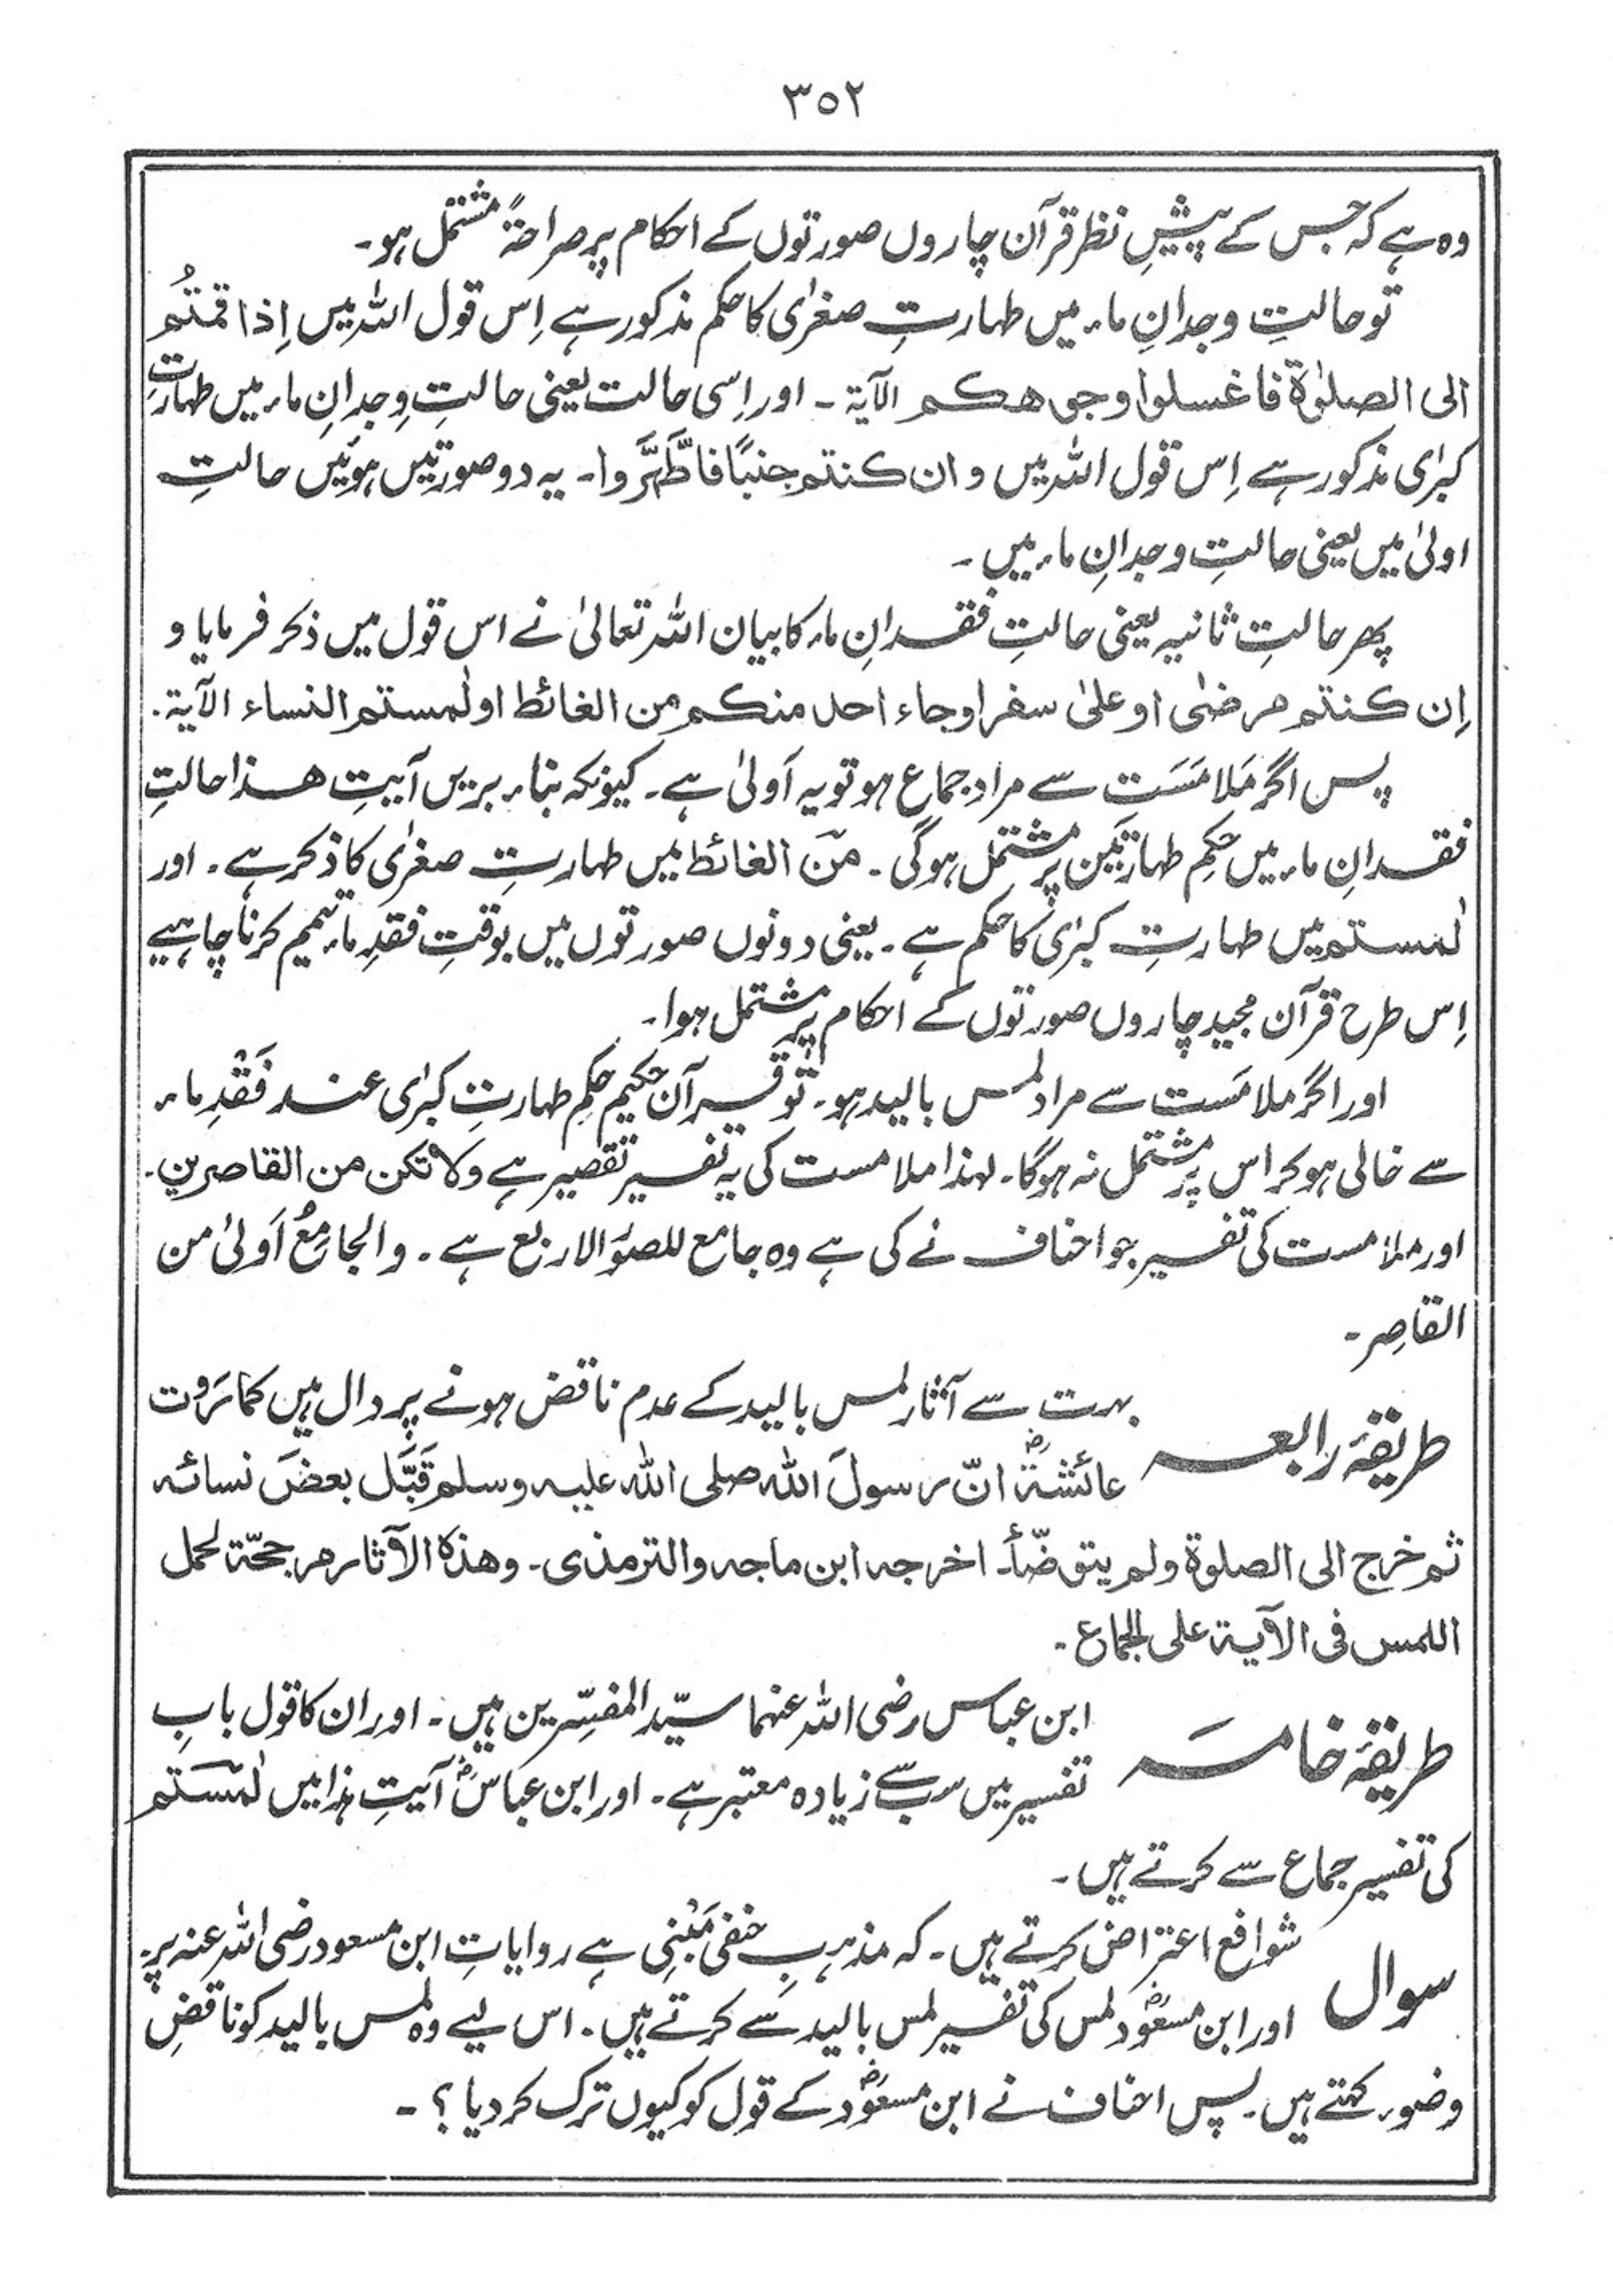 ٣٥٢
وہ ہے کہ جس کے پیشِ نظر قرآن چاروں صورتوں کے احکام پر صراحۃً مشتمل ہو۔
تو حالتِ وجدانِ ماء میں طہارتِ صغرٰی کا حکم مذکور ہے اِس قول اللہ میں اِذا قمتُم
الی الصلوٰۃ فاغسلوا وجوھکم الآیۃ ۔ اور اِسی حالت یعنی حالتِ وِجدانِ ماء میں طہارتِ
کبرٰی مذکور ہے اِس قول اللہ میں و ان کنتم جنبًا فاطَّہَّروا۔ یہ دو صورتیں ہوئیں حالتِ
اولیٰ میں یعنی حالتِ وجدانِ ماء میں ۔
پھر حالتِ ثانیہ یعنی حالتِ فقدانِ ماء کا بیان اللہ تعالیٰ نے اس قول میں ذکر فرمایا و
اِن کنتم مرضٰی او علیٰ سفر او جاء احد منکم من الغائط او لٰمستم النساء الآیۃ۔
پس اگر مَلامَسَت سے مراد جماع ہو تو یہ اَولیٰ ہے۔ کیونکہ بناء بریں آیتِ ھذا حالتِ
فقدانِ ماء میں حکمِ طہارتَین پر مشتمل ہوگی ۔ منَ الغائط میں طہارتِ صغرٰی کا ذکر ہے ۔ اور
لٰمستم میں طہارتِ کبرٰی کا حکم ہے ۔ یعنی دونوں صورتوں میں بوقتِ فقدِ ماء تیمم کرنا چاہیے
اِس طرح قرآن مجید چاروں صورتوں کے احکام پر مشتمل ہوا۔
اور اگر ملامَست سے مراد لمس بالید ہو۔ تو قرآن حکیم حکمِ طہارتِ کبرٰی عند فَقْدِ ماء
سے خالی ہوکر اس پر مشتمل نہ ہوگا۔ لہذا ملامست کی یہ تفسیر تقصیر ہے ولا تکن من القاصرین۔
اور ملامست کی تفسیر جو احناف نے کی ہے وہ جامع للصوَر الاربع ہے ۔ والجامِعُ اَولیٰ من
القاصِر ۔
طریقۂ رابعہ بہت سے آثار لمس بالید کے عدم ناقض ہونے پر دال ہیں کما رَوت
عائشۃؓ انّ رسولَ اللہ صلی اللہ علیہ وسلم قَبَّل بعضَ نسائہ
ثم خرج الی الصلوۃ ولم یتوضّأ۔ اخرجہ ابن ماجہ والترمذی۔ وھذہ الآثار مرجحّۃ لحمل
اللمس فی الآیۃ علی الجماع ۔
طریقۂ خامسَہ ابن عباس رضی اللہ عنہما سیّد المفسّرین ہیں ۔ اور ان کا قول بابِ
تفسیر میں سب سے زیادہ معتبر ہے ۔ اور ابن عباسؓ آیتِ ہٰذا میں لٰمَستم
کی تفسیر جماع سے کرتے ہیں ۔
سوال شوافع اعتراض کرتے ہیں ۔ کہ مذہبِ حنفی مَبْنِی ہے روایاتِ ابن مسعود رضی اللہ عنہ پر۔
اور ابن مسعودؓ لمس کی تفسیر لمس بالید سے کرتے ہیں ۔ اس لیے وہ لمس بالید کو ناقضِ
وضوء کہتے ہیں ۔ پس احناف نے ابن مسعودؓ کے قول کو کیوں ترک کر دیا ؟ ۔